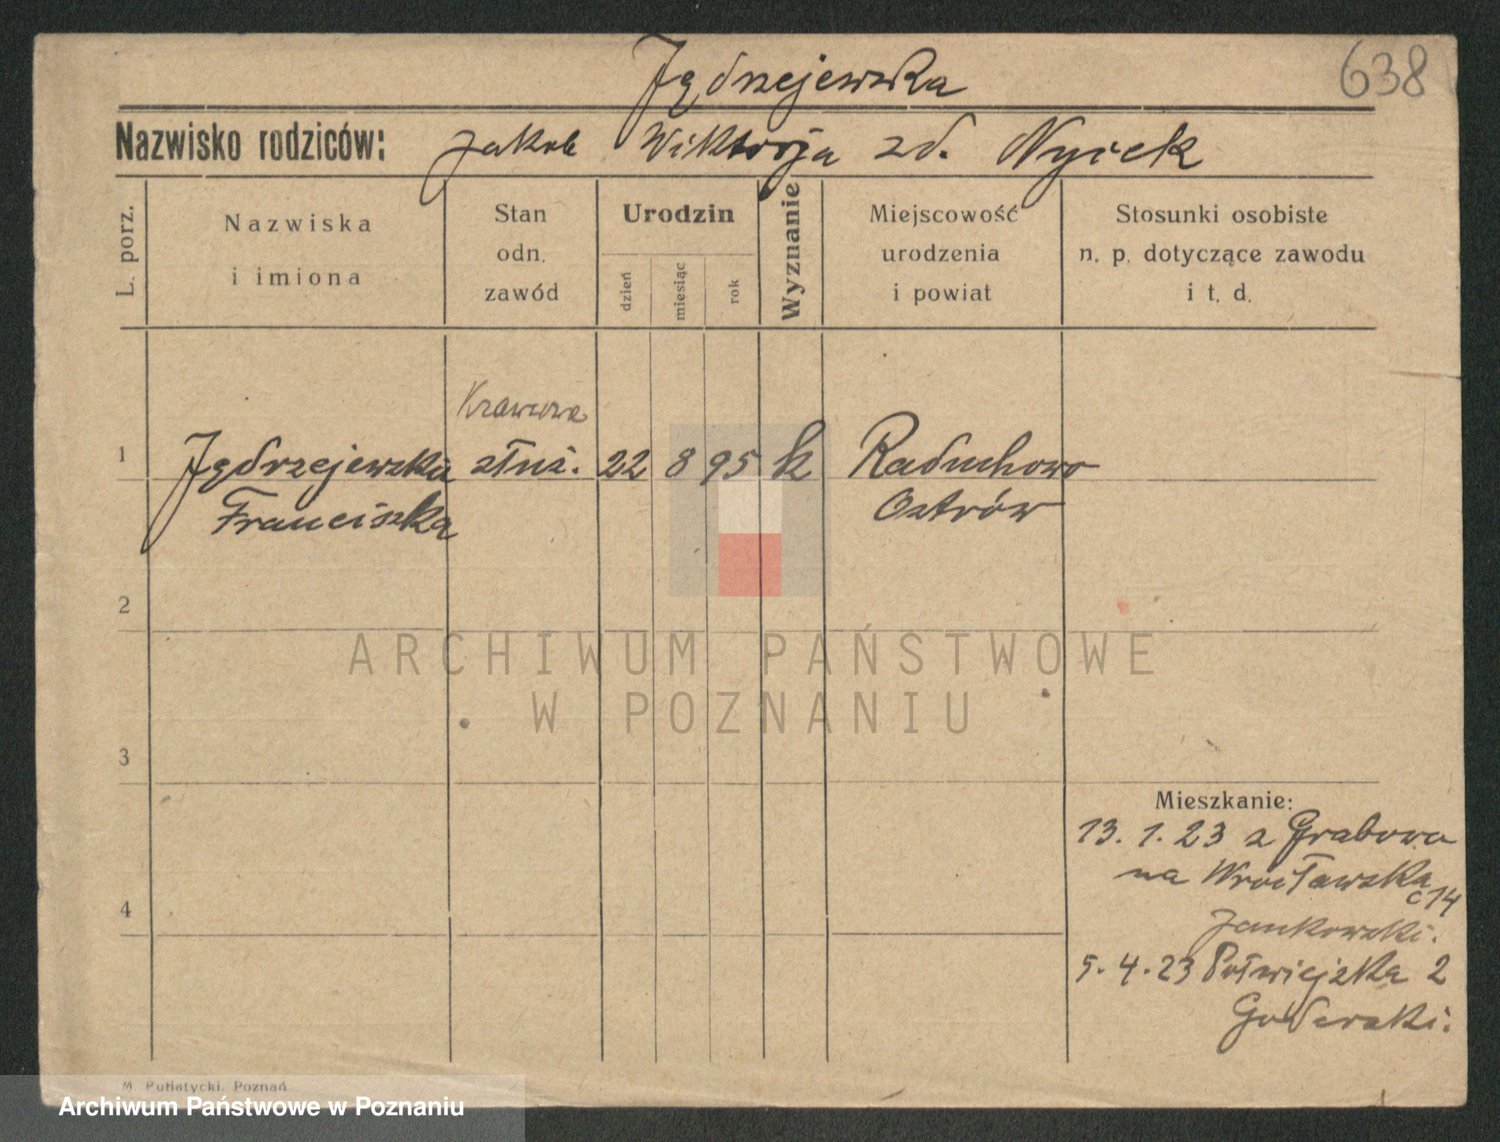 638
Jędrzejewska
Nazwisko rodziców: Jakob Wiktorja zd. Nyick
L. porz.
Nazwiska
i imiona
Stan
odn.
zawód
Urodzin
dzień
miesiąc
rok
Wyznanie
Miejscowość
urodzenia
i powiat
Stosunki osobiste
n. p. dotyczące zawodu
i t. d.
1 Jędrzejewska służ. 22 8 95 k Raduchowo
Franciszka Ostrów
2
3
4
Mieszkanie:
13. 1. 23 z Grabowa
na Wrocławską
14
Jankowski.
5. 4. 23 Półwiejska 2
M. Putiatycki, Poznań
ARCHIWUM PAŃSTWOWE
W POZNANIU
Archiwum Państwowe w Poznaniu